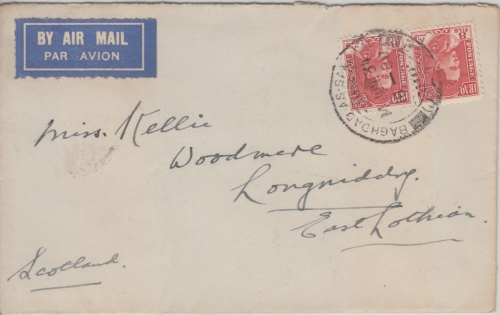 BY AIR MAIL
PAR AVION
BAGHDAD
Miss. Kellie
Woodmere
Longniddry.
East Lothian.
Scotland.